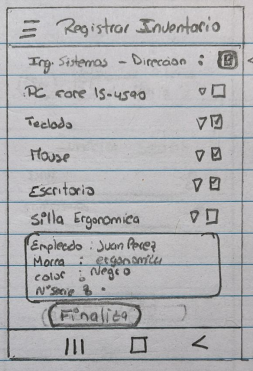 Registrar Inventario
Ing. Sistemas - Direccion :
PC core I5-4590
Teclado
Mouse
Escritorio
Silla Ergonomica
Empleado : Juan Perez
Marca : ergonomica
color : Negro
N° Serie :
Finaliza